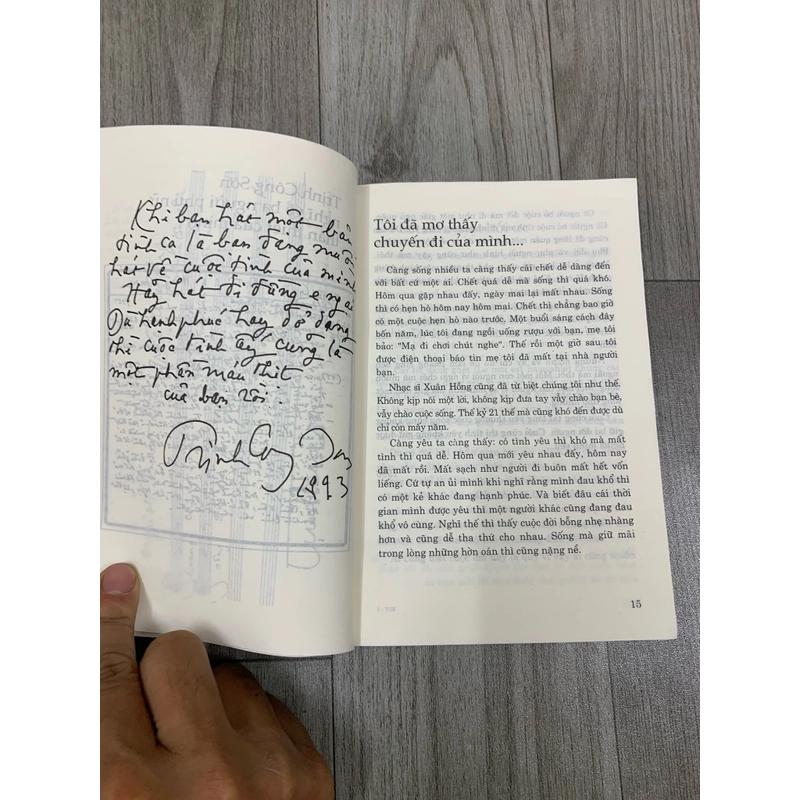 Khi bạn hát một bản
tình ca là bạn đang muốn
hát về cuộc tình của mình
Hãy hát đi đừng e ngại
Dù hạnh phúc hay dở dang
thì cuộc tình ấy cũng là
một phần máu thịt
của bạn rồi.
Trịnh Công Sơn
1993
Tôi đã mơ thấy
chuyến đi của mình...
Càng sống nhiều ta càng thấy cái chết dễ dàng đến
với bất cứ một ai. Chết quá dễ mà sống thì quá khó.
Hôm qua gặp nhau đấy, ngày mai lại mất nhau. Sống
thì có hẹn hò hôm nay hôm mai. Chết thì chẳng bao giờ
có một cuộc hẹn hò nào trước. Một buổi sáng cách đây
bốn năm, lúc tôi đang ngồi uống rượu với bạn, mẹ tôi
bảo: "Mạ đi chơi chút nghe". Thế rồi một giờ sau tôi
được điện thoại báo tin mẹ tôi đã mất tại nhà người
bạn.
Nhạc sĩ Xuân Hồng cũng đã từ biệt chúng tôi như thế.
Không kịp nói một lời, không kịp đưa tay vẫy chào bạn bè,
vẫy chào cuộc sống. Thế kỷ 21 thế mà cũng khó đến được dù
chỉ còn mấy năm.
Càng yêu ta càng thấy: có tình yêu thì khó mà mất
tình thì quá dễ. Hôm qua mới yêu nhau đấy, hôm nay
đã mất rồi. Mất sạch như người đi buôn mất hết vốn
liếng. Cứ tự an ủi mình khi nghĩ rằng mình đau khổ thì
có một kẻ khác đang hạnh phúc. Và biết đâu cái thời
gian mình được yêu thì một người khác cũng đang đau
khổ vô cùng. Nghĩ thế thì thấy cuộc đời bỗng nhẹ nhàng
hơn và cũng dễ tha thứ cho nhau. Sống mà giữ mãi
trong lòng những hờn oán thì cũng nặng nề.
15